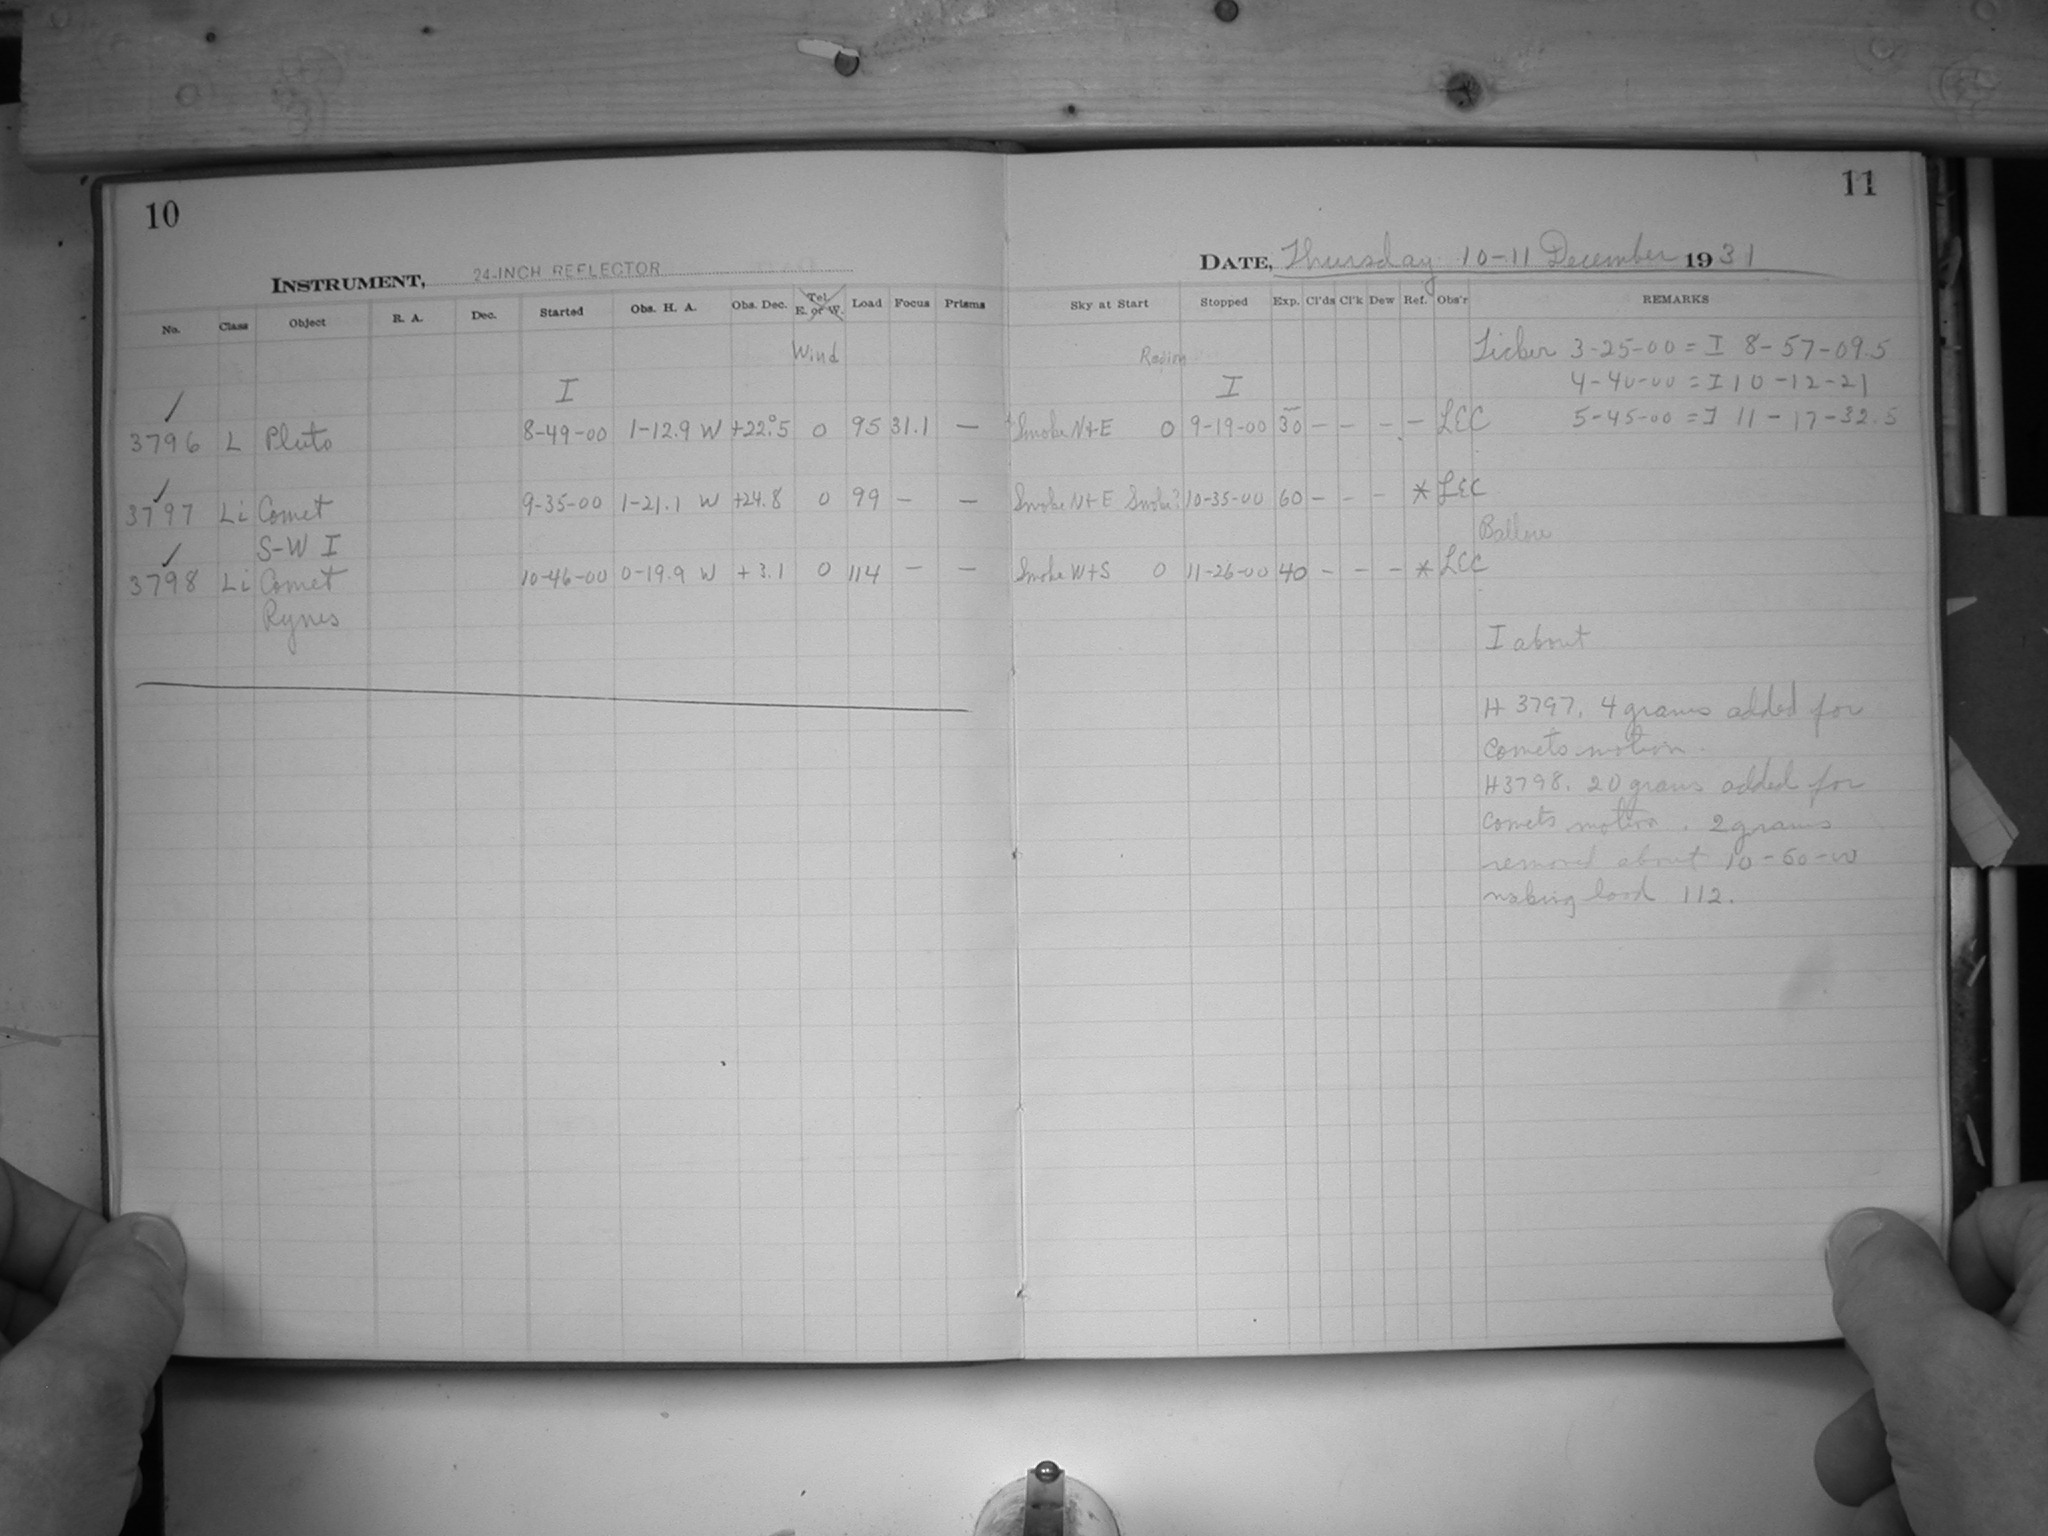 10
INSTRUMENT, 24-INCH REFLECTOR
No. Class Object R. A. Dec. Started Obs. H. A. Obs. Dec. Tel. E. or W. Load Focus Prisms
Wind
I
3796 L Pluto 8-49-00 1-12.9 W +22°.5 0 95 31.1 —
3797 Li Comet 9-35-00 1-21.1 W +24.8 0 99 — —
S-W I
3798 Li Comet 10-46-00 0-19.9 W +3.1 0 114 — —
Rynes
11
DATE, Thursday 10-11 December 1931
Sky at Start Stopped Exp. Cl'ds Cl'k Dew Ref. Obs'r REMARKS
Region Ticker 3-25-00 = I 8-57-09.5
I 4-40-00 = I 10-12-21
Smoke N+E 0 9-19-00 30 — — — — LEC 5-45-00 = I 11-17-32.5
Smoke N+E Smoke? 10-35-00 60 — — — * LEC
Smoke W+S 0 11-26-00 40 — — — * LCC
I about
H 3797. 4 grams added for
comets motion.
H3798. 20 grams added for
comets motion. 2 grams
removed about
making load 112.